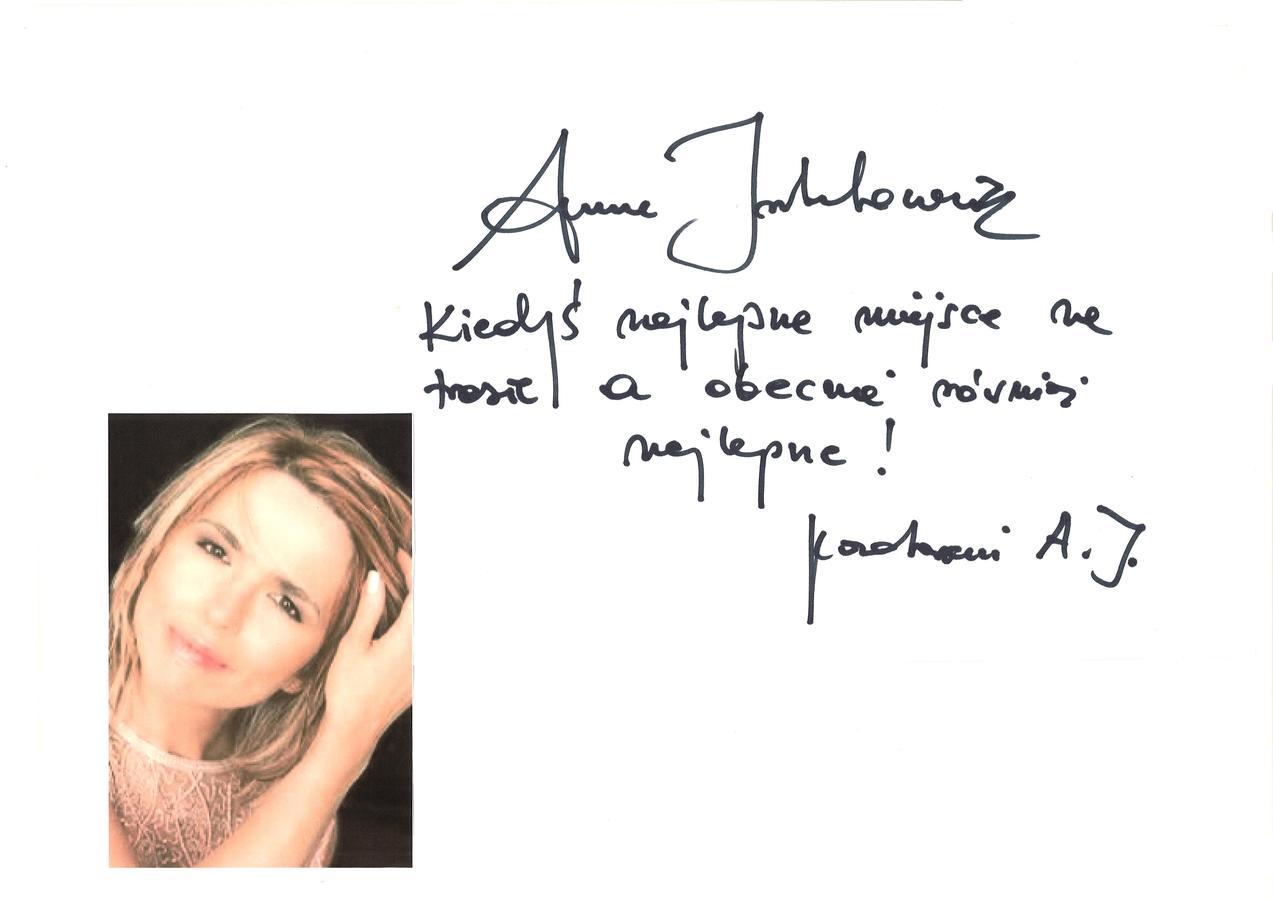 Anna Jurksztowicz
Kiedyś najlepsze miejsce na
trasie a obecnie również
najlepsze!
pozdrawiam A.J.